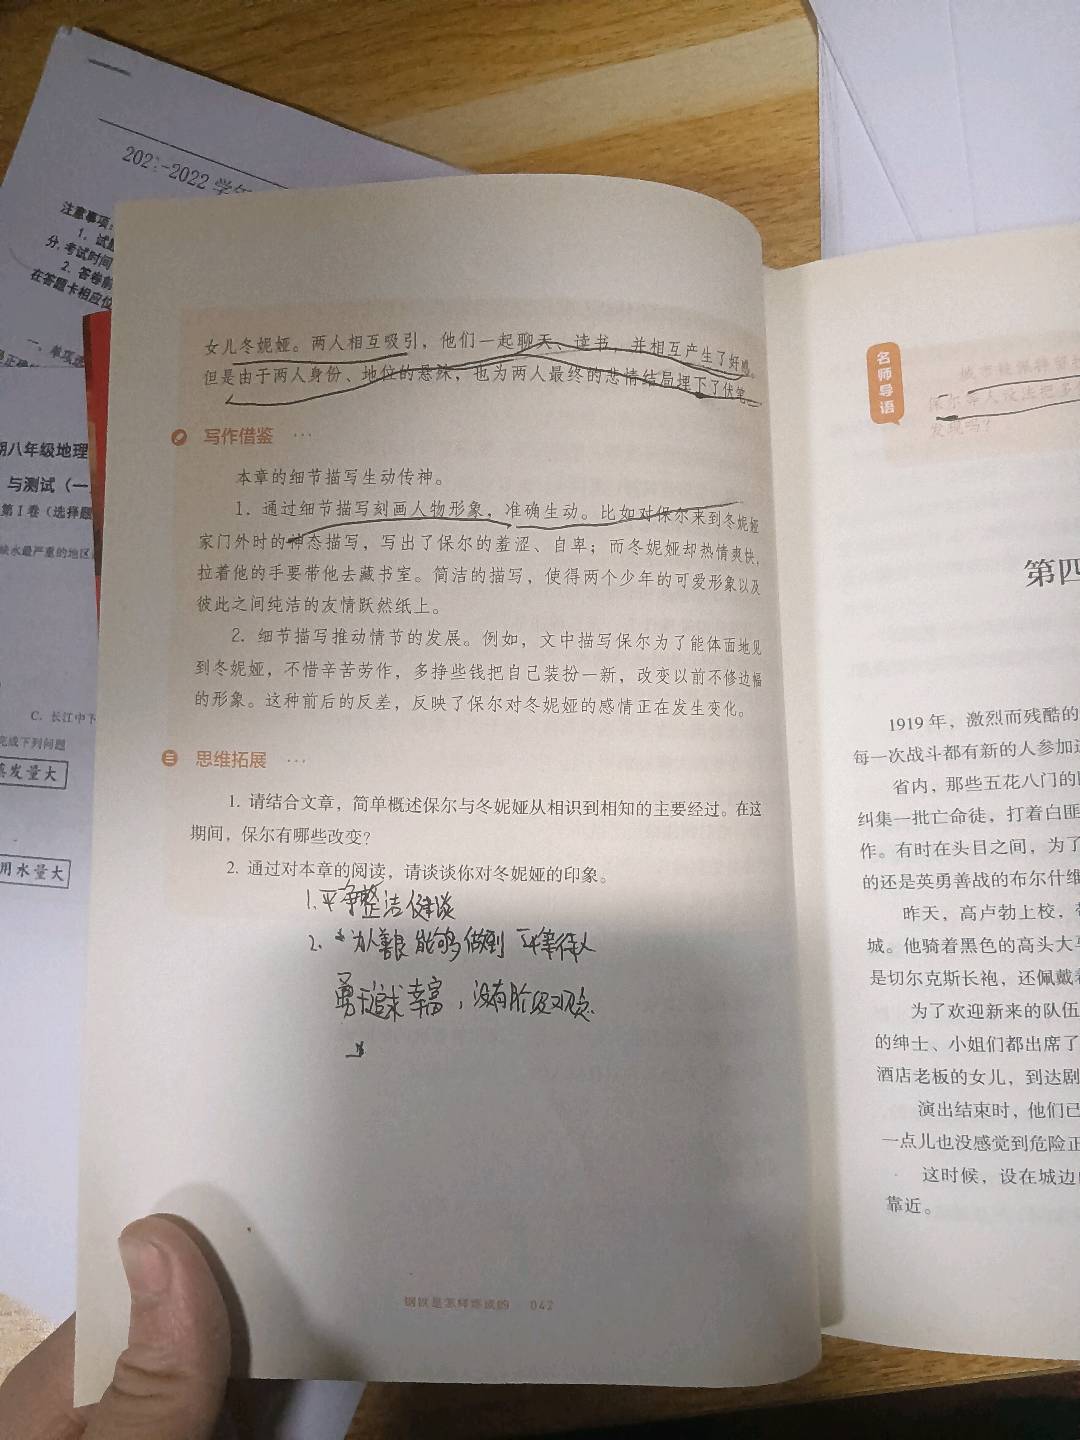 202:-2022 学年
注意事项:
1. 试题
分,考试时间
2. 答卷前
在答题卡相应位
一、单项选
期八年级地理
与测试（一
第 I 卷（选择题
缺水最严重的地区
C. 长江中下
完成下列问题
蒸发量大
用水量大
女儿冬妮娅。两人相互吸引，他们一起聊天、读书，并相互产生了好感。
但是由于两人身份、地位的悬殊，也为两人最终的悲情结局埋下了伏笔。
写作借鉴 ···
本章的细节描写生动传神。
1. 通过细节描写刻画人物形象，准确生动。比如对保尔来到冬妮娅
家门外时的神态描写，写出了保尔的羞涩、自卑；而冬妮娅却热情爽快，
拉着他的手要带他去藏书室。简洁的描写，使得两个少年的可爱形象以及
彼此之间纯洁的友情跃然纸上。
2. 细节描写推动情节的发展。例如，文中描写保尔为了能体面地见
到冬妮娅，不惜辛苦劳作，多挣些钱把自己装扮一新，改变以前不修边幅
的形象。这种前后的反差，反映了保尔对冬妮娅的感情正在发生变化。
思维拓展 ···
1. 请结合文章，简单概述保尔与冬妮娅从相识到相知的主要经过。在这
期间，保尔有哪些改变？
2. 通过对本章的阅读，请谈谈你对冬妮娅的印象。
1. 干净整洁 健谈
2. 为人善良 能够做到 平等待人
勇于追求幸富，没有阶级观念.
钢铁是怎样炼成的 042
名师导语
城市被佩特留拉
保尔等人设法把多
发现吗？
第四
1919 年，激烈而残酷的
每一次战斗都有新的人参加进
省内，那些五花八门的
纠集一批亡命徒，打着白匪
作。有时在头目之间，为了
的还是英勇善战的布尔什维
昨天，高卢勃上校，带
城。他骑着黑色的高头大马
是切尔克斯长袍，还佩戴着
为了欢迎新来的队伍
的绅士、小姐们都出席了
酒店老板的女儿，到达剧
演出结束时，他们已
一点儿也没感觉到危险正
这时候，设在城边的
靠近。